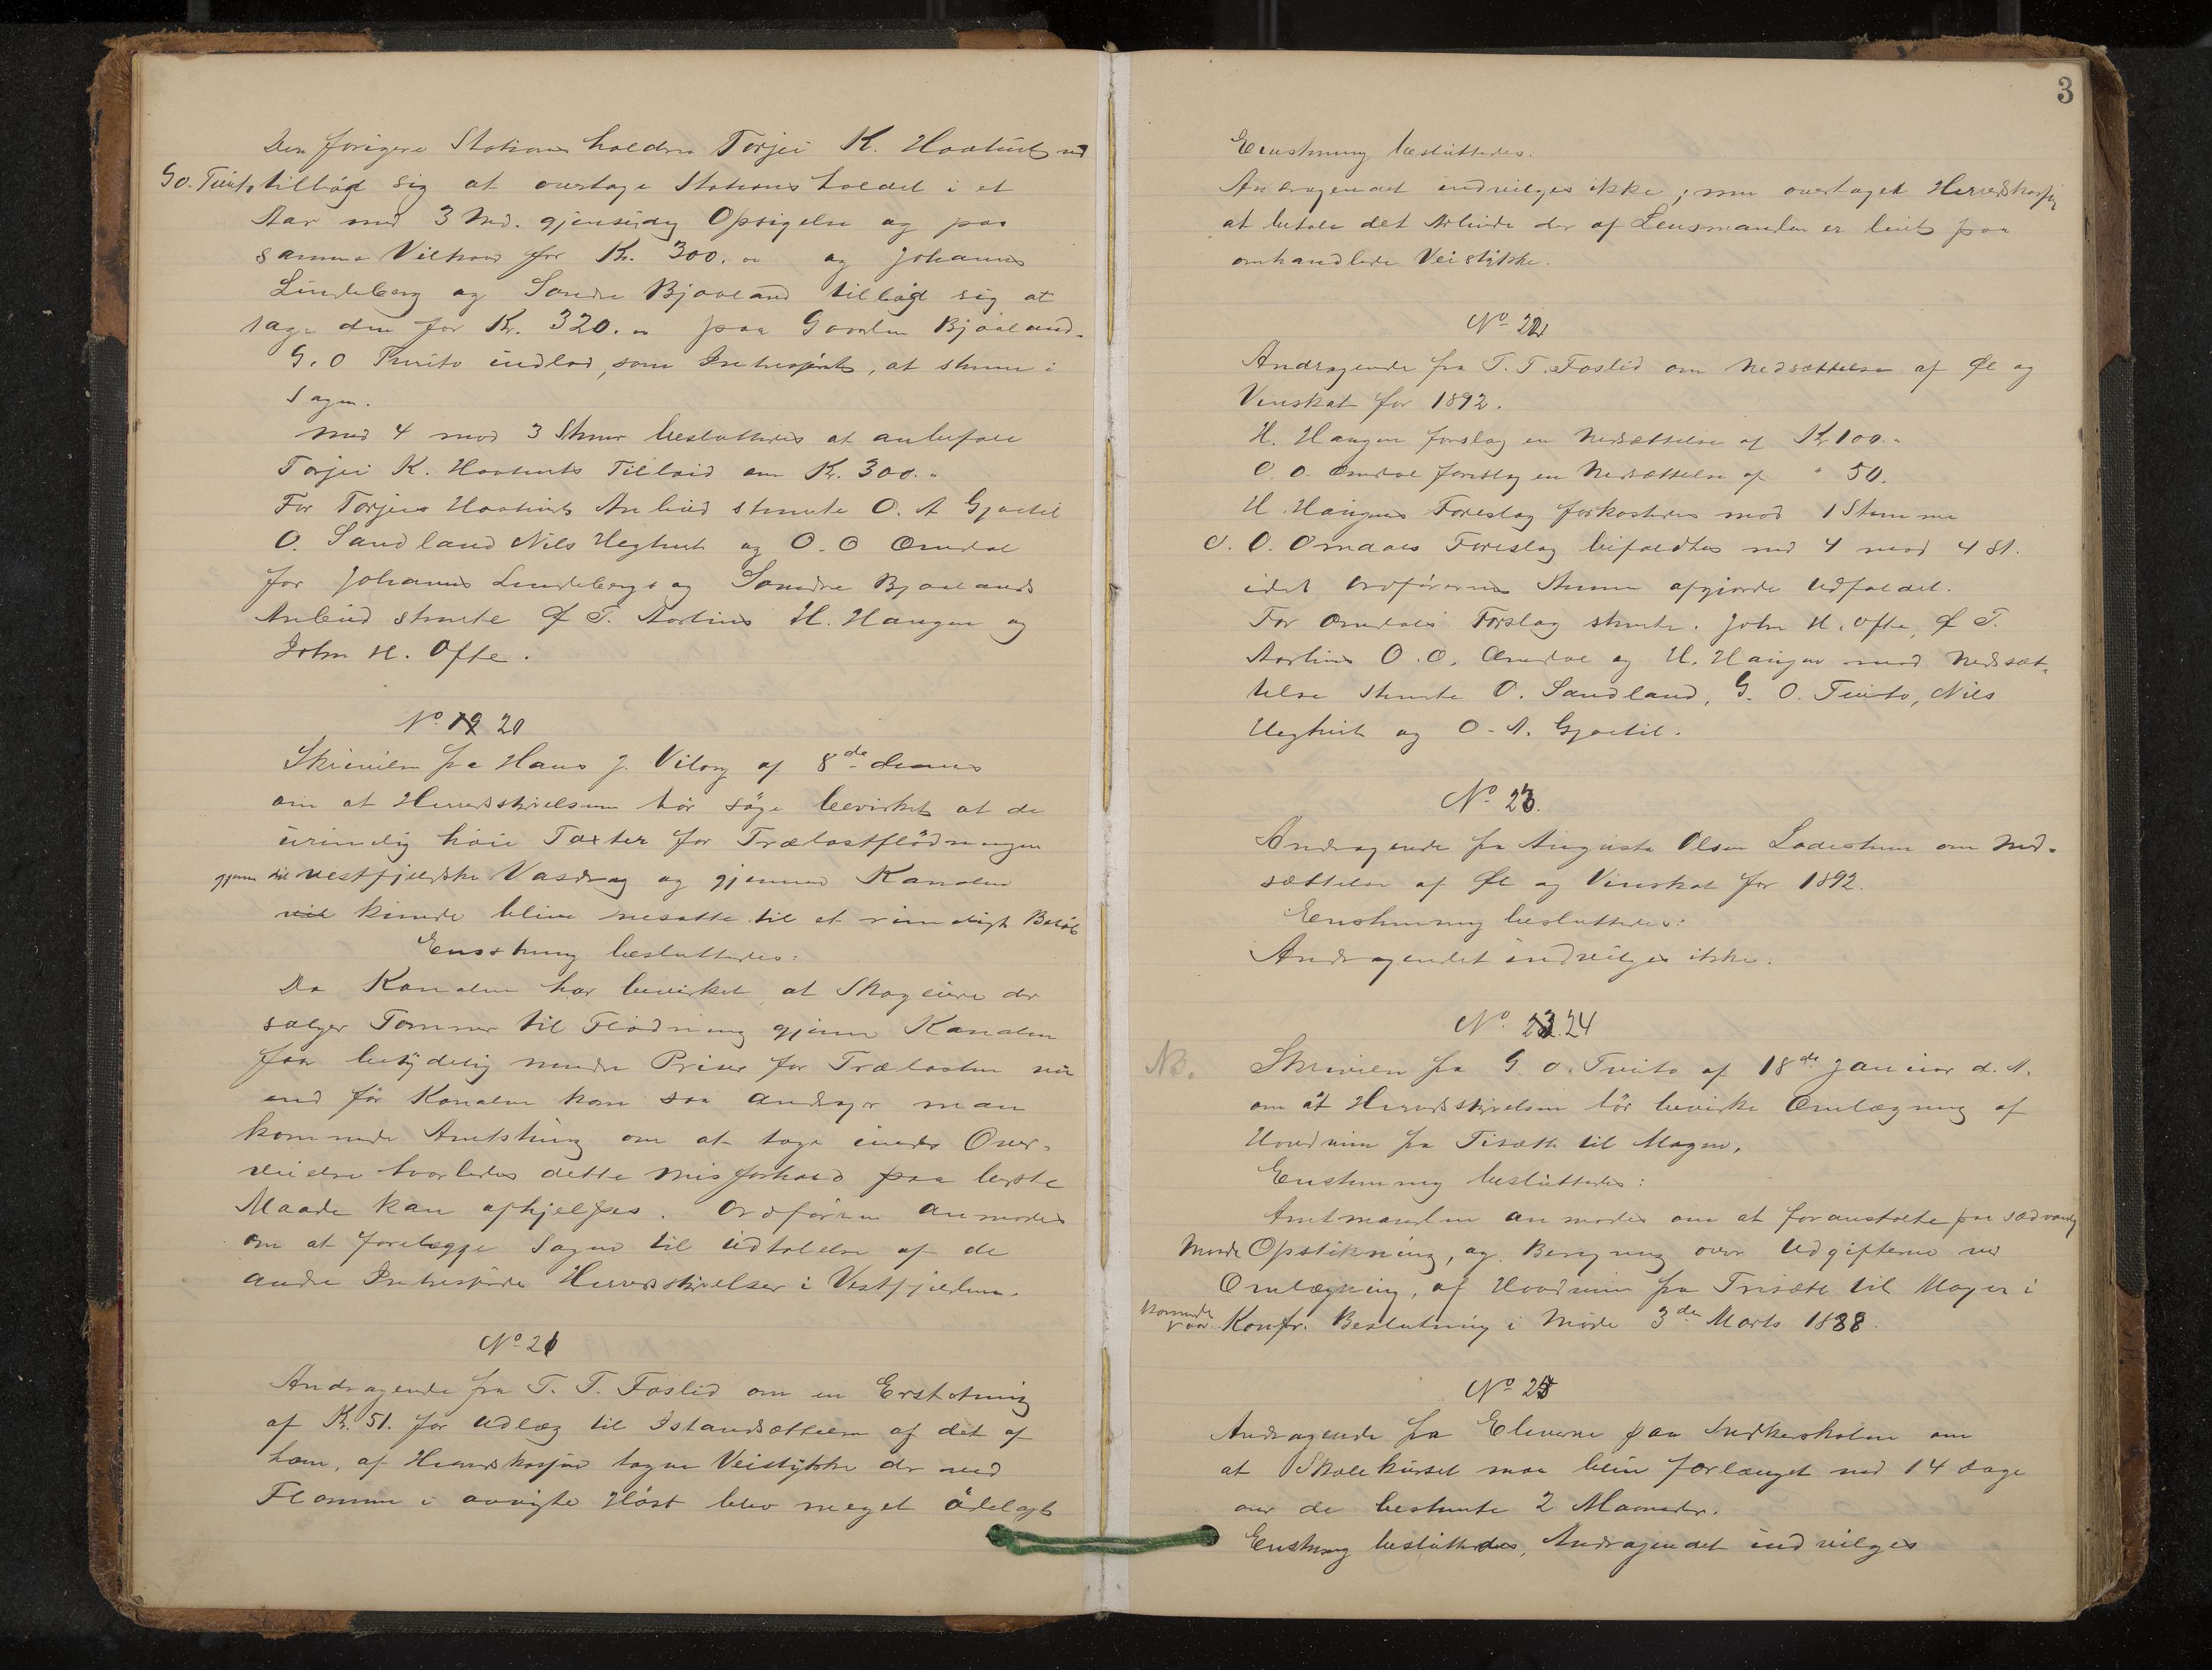 Den forigere Stationsholder Torjei K. Haatveit ved
G.O. Tveito tilböd sig at overtage Stationsholdet i et
Aar med 3 Md. gjensidig Opsigelse og paa
samme Vilkaar for Kr. 300. og Johannes
Lindeberg og Sondre Bjaaland tilböd sig at
tage den for Kr. 320. paa Gaarden Bjaaland.
G. O Tveito undlod, som Interesseret, at stemme i
Sagen.
Med 4 mod 3 Stemmer besluttedes at anbefale
Torjei K. Haatveits Tilbud om Kr. 300.
For Torjeis Haatveits Anbud stemte O. A Gjastil
O. Sandland Nils Hegtveit og O. O Omdal
for Johannes Lindebergs og Sondre Bjaalands
Anbud stemte Ø T. Aarlines H. Haugen og
John H. Ofte.
No 19 20
Skrivelse fra Hans J. Vitaag af 8de dennes
om at Herredsstyrelsen bör söge bevirket at de
urimelig höie Taxter for Trælastflödningen
gjennem det vestfjeldske Vasdrag og gjennem Kanalen
vil kunde blive nesatte til et rimeligt Belöb
Enstemmig besluttedes:
Da Kanalen har bevirket at Skogeiere der
sælger Tømmer til Flödning gjennem Kanalen
faar betydelig mindre Priser for Trælasten nu
end för Kanalen kom saa andrager man
kommende Amtsting om at tage under Over-
veielse hvorledes dette misforhold paa beste
Maade kan afhjelpes. Ordföreren anmodes
om at forelægge Sagen til udtalelse af de
andre Interesserede Herredsstyrelser i Vestfjeldene.
No 21
Andragende fra T. T. Foslid om en Erstatning
af Kr. 51. for Udlæg til Istandsættelse af det af
ham, af Herredskassen tagne Veistykke der ved
Flommen i avvigte Höst blev meget ödelagt
3
Enstemmig besluttedes:
Andragendet indvilges ikke; men overtaget Herredskassen
at betale det Arbeide der af Lensmanden er leiet paa
omhandlede Veistykke.
No 22
Andragende fra T. T. Foslid om Nedsættelse af Øl og
Vinskat for 1892.
H. Haugen foreslog en Nedsættelse af Kr 100.
O. O. Omdal foreslog en Nedsættelse af " 50.
H. Haugens Foreslag forkastedes mod 1 Stemme
O. O. Omdals Foreslag bifaldtes med 4 mod 4 St.
idet Ordförerens Stemme afgjorde Udfaldet.
For Omdals Forslag stemte. John H. Ofte, Ø T.
Aarlines O. O. Omdal og H. Haugen mod Nedsæt-
telse stemte O. Sandland, G. O. Tveito, Nils
Hegtveit og O. A. Gjastil.
No 23.
Andragende fra Augusta Olsen Ladestuen om Ned-
sættelse af Øl og Vinskat for 1892.
Enstemmig besluttedes:
Andragendet indvilges ikke.
No. 23. 24
NB. Skrivelse fra G. O. Tveito af 18de Januar d. A.
om at Herredsstyrelsen bör bevirke Omlægning af
Hovedveien fra Tisæth til Mogen.
Enstemmig besluttedes:
Amtmanden anmodes om at foranstalte paa sædvanlig
Maade Opstikning, og Beregning over Udgifterne ved
Omlægning, af Hovedveien fra Trisæt til Mogen i
kommende Vaar. Konfr. Beslutning i Möde 3die Marts 1888.
No 25
Andragende fra Eleverne paa Snedkerskolen om
at Skolekurset maa blive forlænget med 14 dage
over de bestemte 2 Maaneder.
Enstemmig besluttedes, Andragendet indvilges